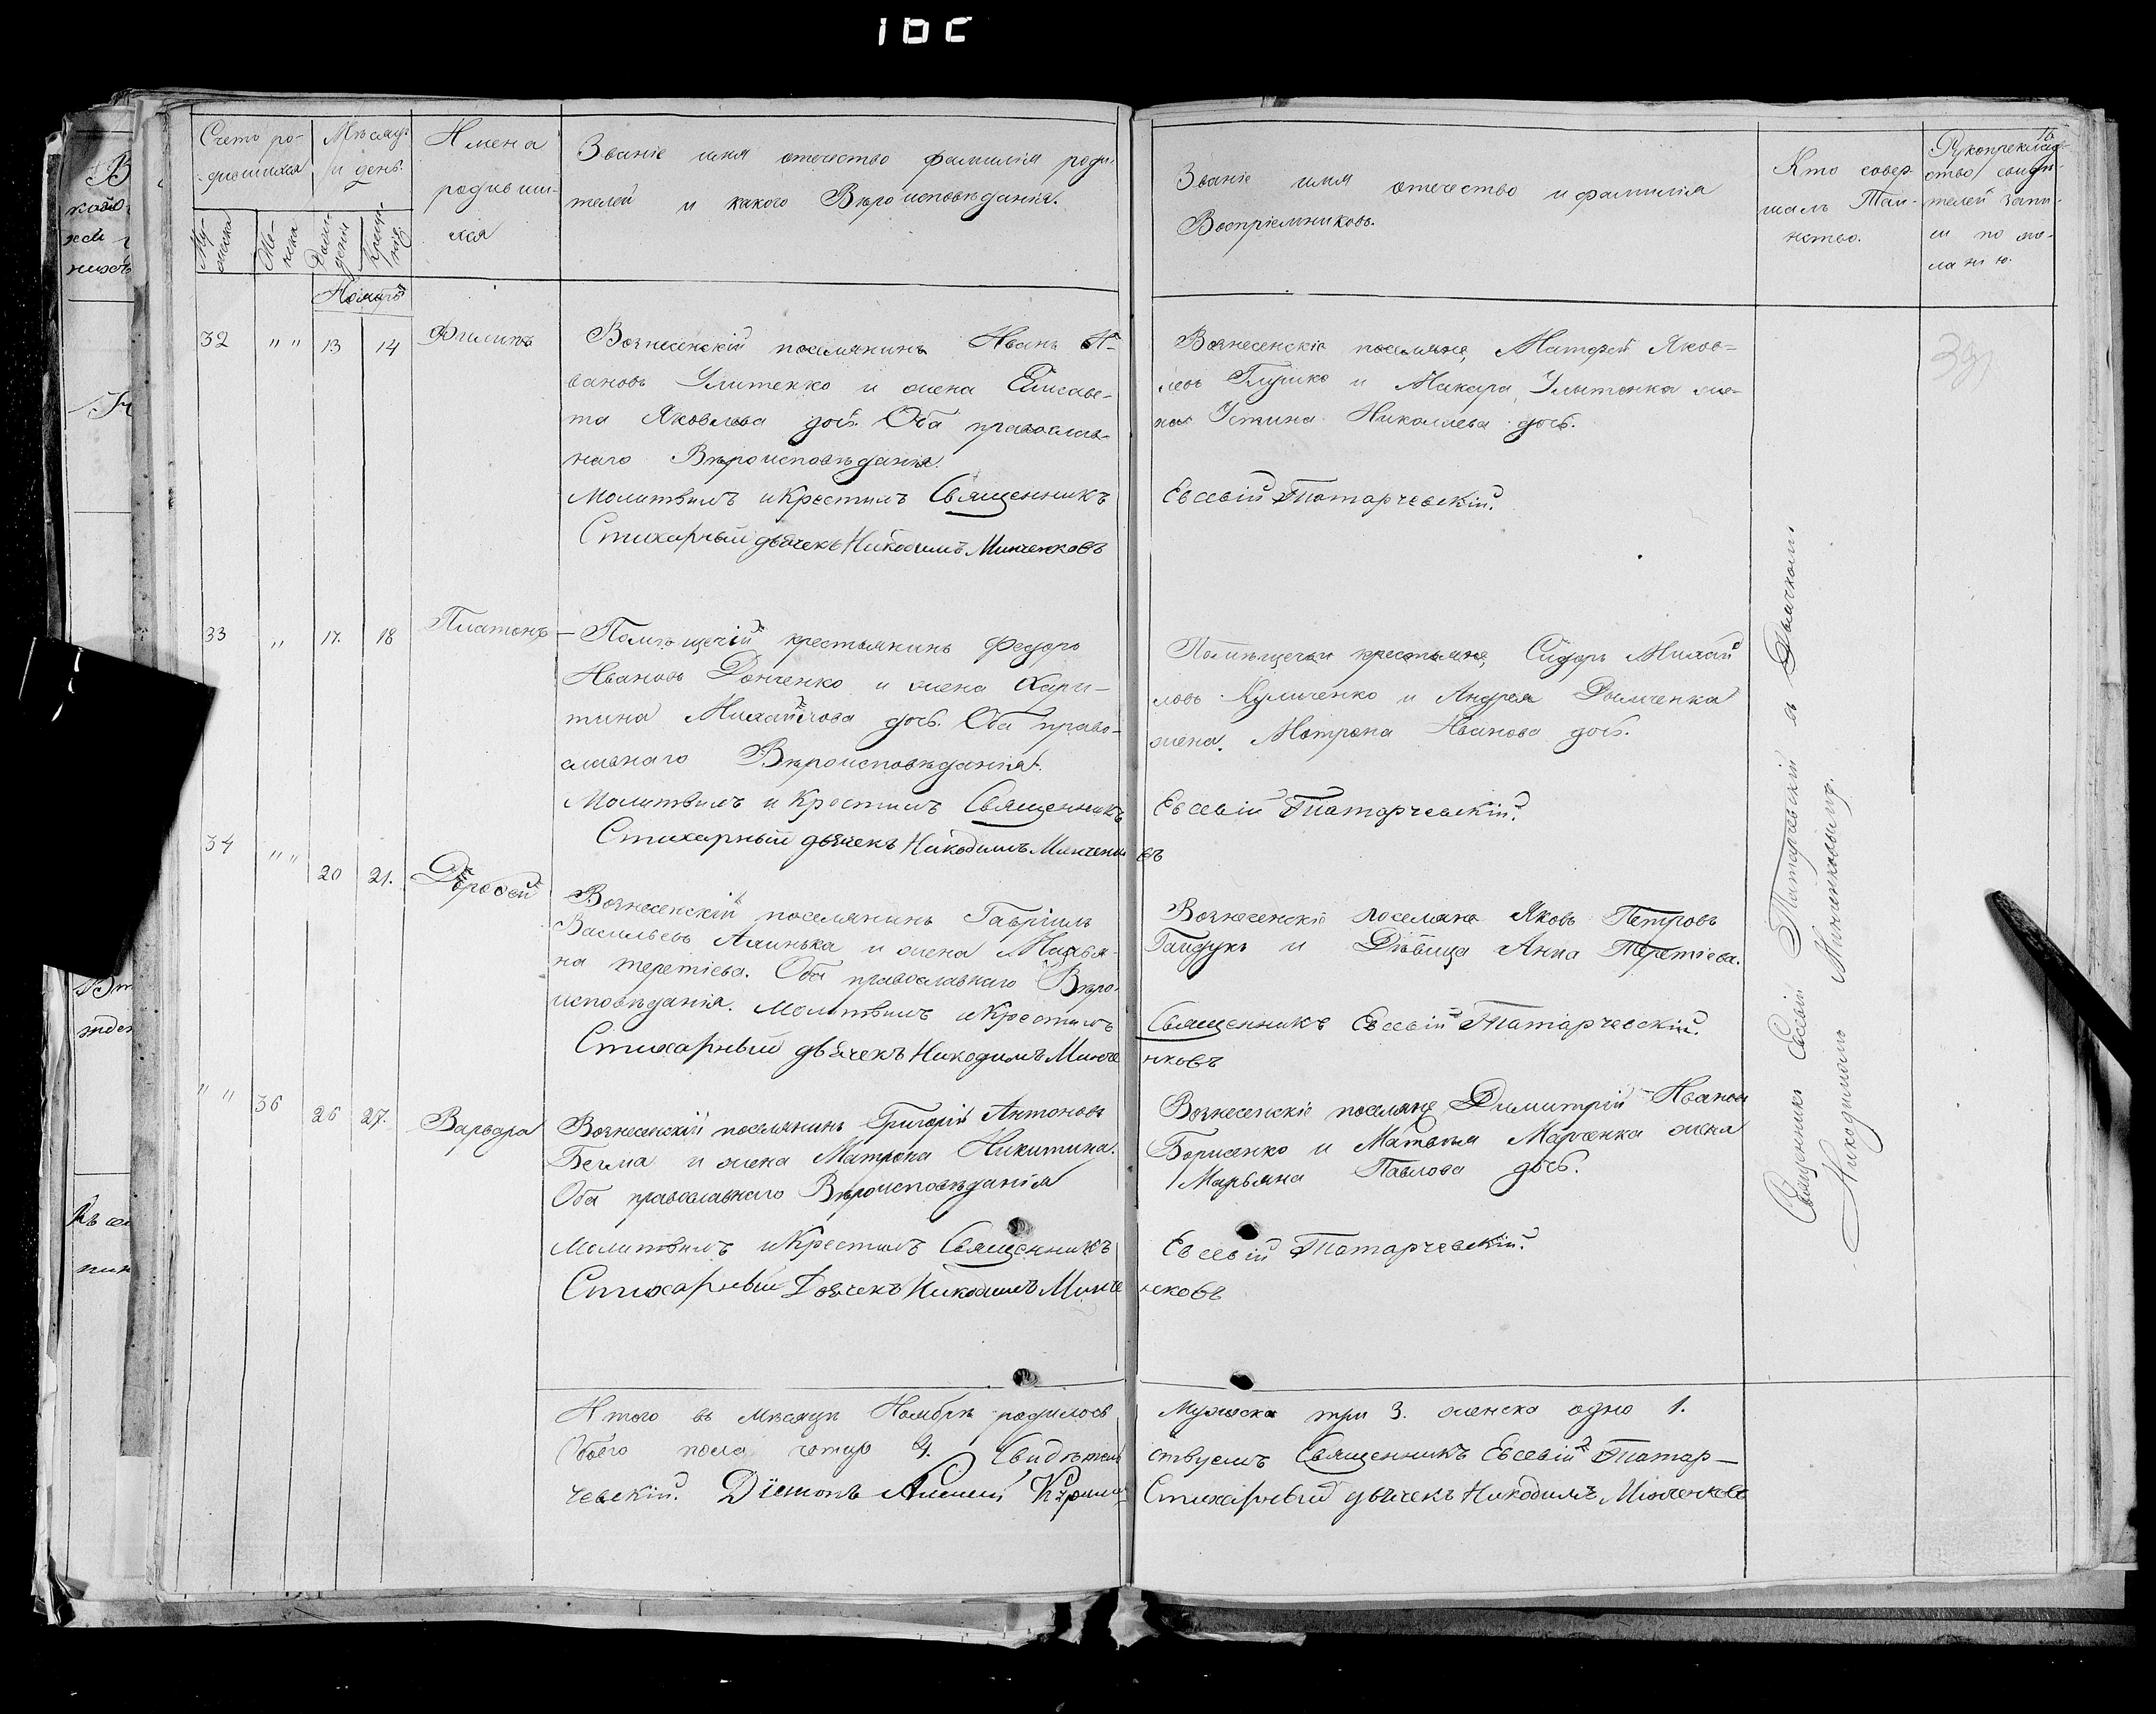 Счетъ ро-
дившихся
Мѣсяцъ
и день.
Имена
родивши-
хся
Званіе имя отечество фамилія роди-
телей и какого Вѣроисповѣданія.
Званіе имя отечество и фамилія
Воспріемниковъ.
Кто совер-
шалъ Таи-
нство.
Рукоприклад-
ство свидѣ-
телей запи-
си по же-
ланію.
Му-
жеска
Же-
нска
Рож-
денія
Креще-
нія
Ноября
32 " " 13 14 Филипъ
Вознесенскій поселянинъ Иванъ И-
вановъ Улитенко и жена Елисаве-
та Яковлева дочь. Оба православ-
наго Вѣроисповѣданія.
Молитвилъ и Крестилъ Священникъ
Стихарный дьячекъ Никодимъ Минченковъ
Вознесенскіе поселяне, Матфей Яков-
левъ Глушко и Макара Улитенка же-
на Устина Николаева дочь.
Евсевій Татарчевскій.
33 " 17. 18 Платонъ
Помѣщечій крестьянинъ Федоръ
Ивановъ Донченко и жена Хари-
тина Михайлова дочь. Оба право-
славнаго Вѣроисповѣданія.
Молитвилъ и Крестилъ Священникъ
Стихарный дьячекъ Никодимъ Минченко
Помѣщечьи крестьяне, Сидоръ Михай
ловъ Куличенко и Андрея Дымченка
жена. Мотрона Иванова дочь.
Евсевій Татарчевскій.
въ
34 " " 20 21. Дорофей
Вознесенскій поселянинъ Гавріилъ
Васильевъ Алинька и жена Марья-
на Терентіева. Оба православнаго Вѣро-
исповѣданія. Молитвилъ и Крестилъ
Стихарный дьячекъ Никодимъ Минче
Вознесенскіе поселяне Яковъ Петровъ
Гайдукъ и Дѣвица Анна Терентіева.
Священникъ Евсевій Татарчевскій.
нковъ
" " 36 26 27. Варвара
Вознесенскій поселянинъ Григорій Антоновъ
Бегма и жена Матрона Никитина.
Оба православнаго Вѣроисповѣданія
Молитвилъ и Крестилъ Священникъ
Стихарный Дьячекъ Никодимъ Минче
Вознесенскіе поселяне Димитрій Иванов
Борисенко и Матвѣя Марченка жена
Марьяна Павлова дочь.
Евсевій Татарчевскій.
нковъ
Священникъ Евсевій Татарчевскій съ Дьячкомъ
Никодимомъ Минченковымъ.
Итого въ мѣсяцѣ Ноябрѣ родилось
Обоего пола четыр 4. Свидѣтель
чевскій. Діаконъ Алексій
Мужеска три 3. женска одно 1.
ствуемъ Священникъ Евсевій Татар-
Стихарный дьячекъ Никодимъ Минченковъ